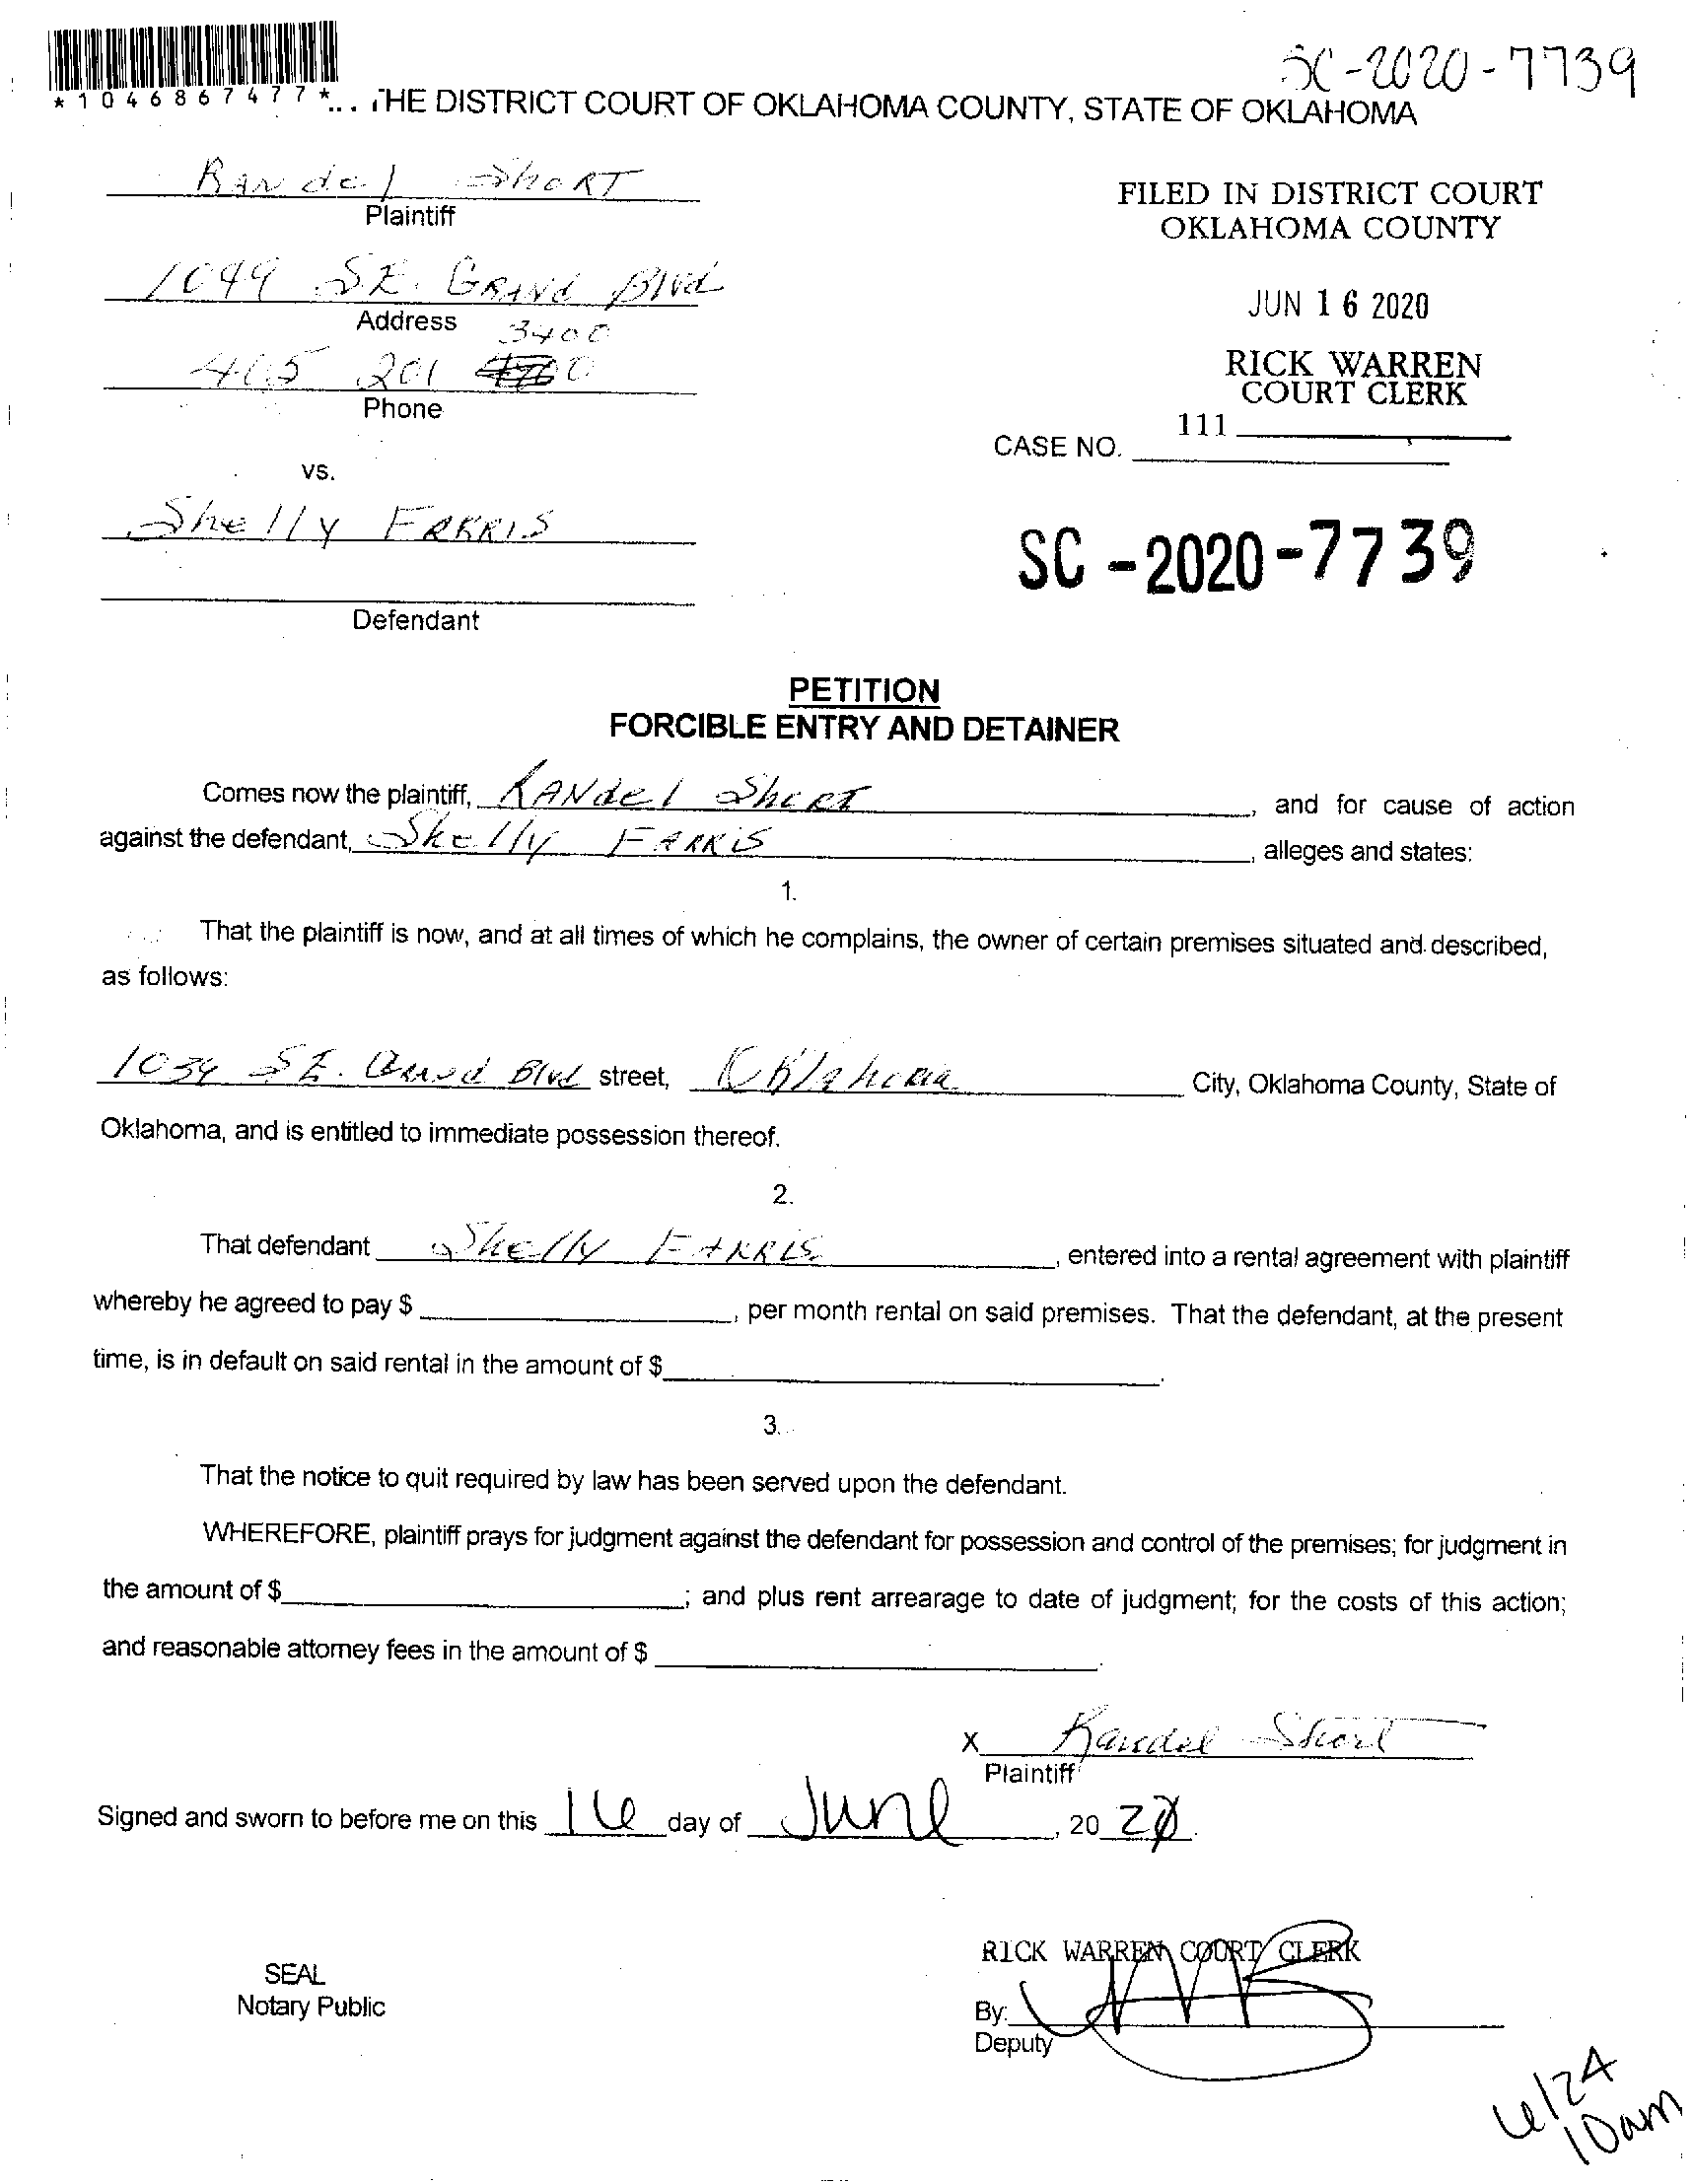 SC-2020-7739
*1046867477*... THE DISTRICT COURT OF OKLAHOMA COUNTY, STATE OF OKLAHOMA
RANdel ShoRT
Plaintiff
FILED IN DISTRICT COURT
OKLAHOMA COUNTY
1049 S.E. GRANd Blvd
Address
JUN 16 2020
3400
405 201
Phone
RICK WARREN
COURT CLERK
111
CASE NO.
vs.
Shelly FARRIS
SC-2020-7739
Defendant
PETITION
FORCIBLE ENTRY AND DETAINER
Comes now the plaintiff, RANdel ShoRT, and for cause of action
against the defendant, Shelly FARRiS, alleges and states:
1.
That the plaintiff is now, and at all times of which he complains, the owner of certain premises situated and described,
as follows:
1034 S.E. Grand Blvd street, Oklahoma City, Oklahoma County, State of
Oklahoma, and is entitled to immediate possession thereof.
2.
That defendant Shelly FARRIS, entered into a rental agreement with plaintiff
whereby he agreed to pay $, per month rental on said premises. That the defendant, at the present
time, is in default on said rental in the amount of $.
3.
That the notice to quit required by law has been served upon the defendant.
WHEREFORE, plaintiff prays for judgment against the defendant for possession and control of the premises; for judgment in
the amount of $; and plus rent arrearage to date of judgment; for the costs of this action;
and reasonable attorney fees in the amount of $.
X Randel Short
Plaintiff
Signed and sworn to before me on this 16 day of June, 20 20.
RICK WARREN COURT CLERK
SEAL
Notary Public
By:
Deputy
6/24
10am